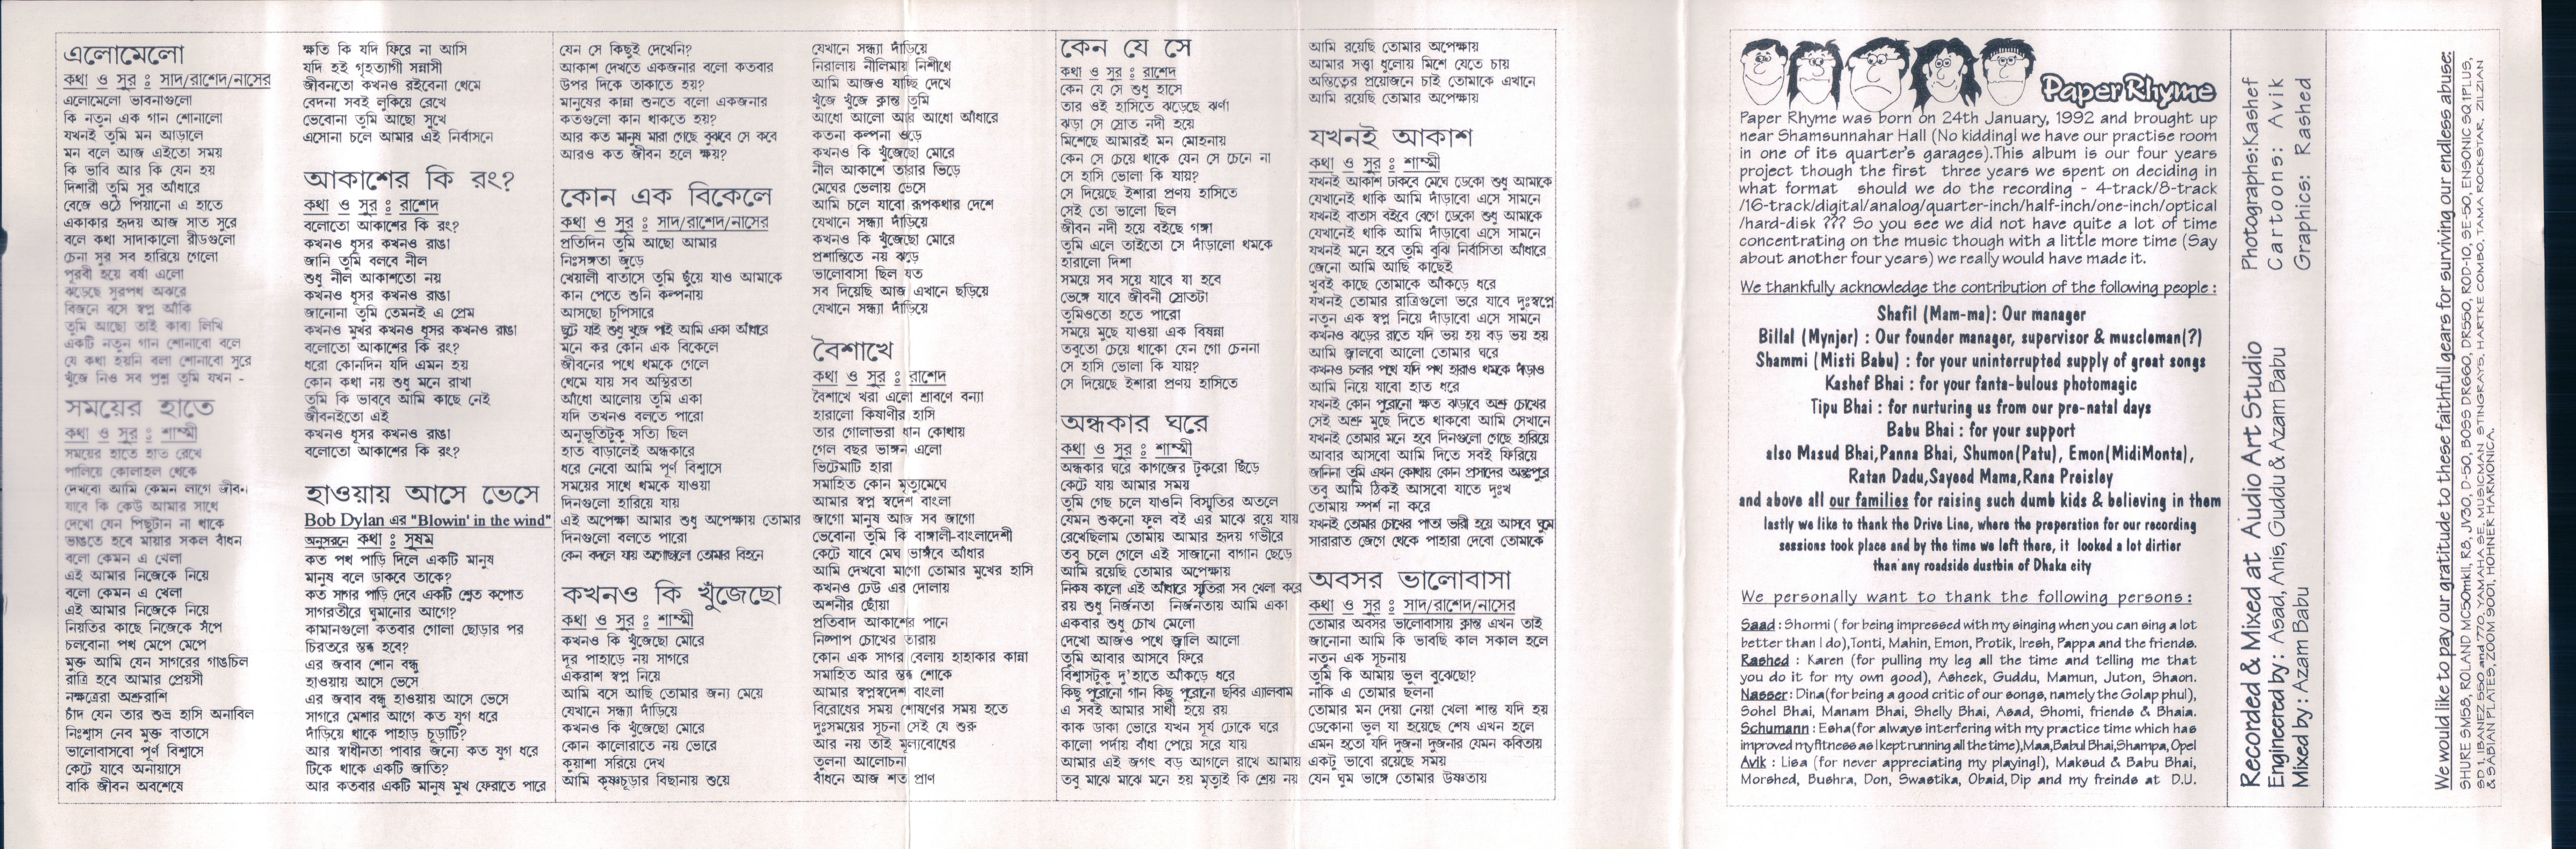 এলোমেলো
কথা ও সুর : সাদ/রাশেদ/নাসের
এলোমেলো ভাবনাগুলো
কি নতুন এক গান শোনালো
যখনই তুমি মন আড়ালে
মন বলে আজ এইতো সময়
কি ভাবি আর কি যেন হয়
দিশারী তুমি সুর আঁধারে
বেজে ওঠে পিয়ানো এ হাতে
একাকার হৃদয় আজ সাত সুরে
বলে কথা সাদাকালো রীডগুলো
চেনা সুর সব হারিয়ে গেলো
পূরবী হয়ে বর্ষা এলো
ঝড়েছে সুরপথ অঝরে
বিজনে বসে স্বপ্ন আঁকি
তুমি আছো তাই কাব্য লিখি
একটি নতুন গান শোনাবো বলে
যে কথা হয়নি বলা শোনাবো সুরে
খুঁজে নিও সব প্রশ্ন তুমি যখন -
সময়ের হাতে
কথা ও সুর : শাম্মী
সময়ের হাতে হাত রেখে
পালিয়ে কোলাহল থেকে
দেখবো আমি কেমন লাগে জীবন
যাবে কি কেউ আমার সাথে
দেখো যেন পিছুটান না থাকে
ভাঙতে হবে মায়ার সকল বাঁধন
বলো কেমন এ খেলা
এই আমার নিজেকে নিয়ে
বলো কেমন এ খেলা
এই আমার নিজেকে নিয়ে
নিয়তির কাছে নিজেকে সঁপে
চলবোনা পথ মেপে মেপে
মুক্ত আমি যেন সাগরের গাঙচিল
রাত্রি হবে আমার প্রেয়সী
নক্ষত্রেরা অশ্রুরাশি
চাঁদ যেন তার শুভ্র হাসি অনাবিল
নিঃশ্বাস নেব মুক্ত বাতাসে
ভালোবাসবো পূর্ণ বিশ্বাসে
কেটে যাবে অনায়াসে
বাকি জীবন অবশেষে
ক্ষতি কি যদি ফিরে না আসি
যদি হই গৃহত্যাগী সন্নাসী
জীবনতো কখনও রইবেনা থেমে
বেদনা সবই লুকিয়ে রেখে
ভেবোনা তুমি আছো সুখে
এসোনা চলে আমার এই নির্বাসনে
আকাশের কি রং?
কথা ও সুর : রাশেদ
বলোতো আকাশের কি রং?
কখনও ধূসর কখনও রাঙা
জানি তুমি বলবে নীল
শুধু নীল আকাশতো নয়
কখনও ধূসর কখনও রাঙা
জানোনা তুমি তেমনই এ প্রেম
কখনও মুখর কখনও ধূসর কখনও রাঙা
বলোতো আকাশের কি রং?
ধরো কোনদিন যদি এমন হয়
কোন কথা নয় শুধু মনে রাখা
তুমি কি ভাববে আমি কাছে নেই
জীবনইতো এই
কখনও ধূসর কখনও রাঙা
বলোতো আকাশের কি রং?
হাওয়ায় আসে ভেসে
Bob Dylan এর "Blowin' in the wind"
অনুসরনে কথা : সুষম
কত পথ পাড়ি দিলে একটি মানুষ
মানুষ বলে ডাকবে তাকে?
কত সাগর পাড়ি দেবে একটি শ্বেত কপোত
সাগরতীরে ঘুমানোর আগে?
কামানগুলো কতবার গোলা ছোড়ার পর
চিরতরে স্তব্ধ হবে?
এর জবাব শোন বন্ধু
হাওয়ায় আসে ভেসে
এর জবাব বন্ধু হাওয়ায় আসে ভেসে
সাগরে মেশার আগে কত যুগ ধরে
দাঁড়িয়ে থাকে পাহাড় চূড়াটি?
আর স্বাধীনতা পাবার জন্যে কত যুগ ধরে
টিকে থাকে একটি জাতি?
আর কতবার একটি মানুষ মুখ ফেরাতে পারে
যেন সে কিছুই দেখেনি?
আকাশ দেখতে একজনার বলো কতবার
উপর দিকে তাকাতে হয়?
মানুষের কান্না শুনতে বলো একজনার
কতগুলো কান থাকতে হয়?
আর কত মানুষ মারা গেছে বুঝবে সে কবে
আরও কত জীবন হলে ক্ষয়?
কোন এক বিকেলে
কথা ও সুর : সাদ/রাশেদ/নাসের
প্রতিদিন তুমি আছো আমার
নিঃসঙ্গতা জুড়ে
খেয়ালী বাতাসে তুমি ছুঁয়ে যাও আমাকে
কান পেতে শুনি কল্পনায়
আসছো চুপিসারে
ছুটে যাই শুধু খুজে পাই আমি একা আঁধারে
মনে কর কোন এক বিকেলে
জীবনের পথে থমকে গেলে
থেমে যায় সব অস্থিরতা
আঁধো আলোয় তুমি একা
যদি তখনও বলতে পারো
অনুভূতিটুকু সত্যি ছিল
হাত বাড়ালেই অন্ধকারে
ধরে নেবো আমি পূর্ণ বিশ্বাসে
সময়ের সাথে থমকে যাওয়া
দিনগুলো হারিয়ে যায়
এই অপেক্ষা আমার শুধু অপেক্ষায় তোমার
দিনগুলো বলতে পারো
কেন বদলে যায় অগোছালো তোমার বিহনে
কখনও কি খুঁজেছো
কথা ও সুর : শাম্মী
কখনও কি খুঁজেছো মোরে
দূর পাহাড়ে নয় সাগরে
একরাশ স্বপ্ন নিয়ে
আমি বসে আছি তোমার জন্য মেয়ে
যেখানে সন্ধ্যা দাঁড়িয়ে
কখনও কি খুঁজেছো মোরে
কোন কালোরাতে নয় ভোরে
কুয়াশা সরিয়ে দেখ
আমি কৃষ্ণচূড়ার বিছানায় শুয়ে
যেখানে সন্ধ্যা দাঁড়িয়ে
নিরালায় নীলিমায় নিশীথে
আমি আজও যাচ্ছি দেখে
খুঁজে খুঁজে ক্লান্ত তুমি
আধো আলো আর আধো আঁধারে
কতনা কল্পনা ওড়ে
কখনও কি খুঁজেছো মোরে
নীল আকাশে তারার ভিড়ে
মেঘের ভেলায় ভেসে
আমি চলে যাবো রূপকথার দেশে
যেখানে সন্ধ্যা দাঁড়িয়ে
কখনও কি খুঁজেছো মোরে
প্রশান্তিতে নয় ঝড়ে
ভালোবাসা ছিল যত
সব দিয়েছি আজ এখানে ছড়িয়ে
যেখানে সন্ধ্যা দাঁড়িয়ে
বৈশাখে
কথা ও সুর : রাশেদ
বৈশাখে খরা এলো শ্রাবণে বন্যা
হারালো কিষাণীর হাসি
তার গোলাভরা ধান কোথায়
গেল বছর ভাঙ্গন এলো
ভিটেমাটি হারা
সমাহিত কোন মৃত্যুমেঘে
আমার স্বপ্ন স্বদেশ বাংলা
জাগো মানুষ আজ সব জাগো
ভেবোনা তুমি কি বাঙ্গালী-বাংলাদেশী
কেটে যাবে মেঘ ভাঙ্গবে আঁধার
আমি দেখবো মাগো তোমার মুখের হাসি
কখনও ঢেউ এর দোলায়
অশনীর ছোঁয়া
প্রতিবাদ আকাশের পানে
নিষ্পাপ চোখের তারায়
কোন এক সাগর বেলায় হাহাকার কান্না
সমাহিত আর স্তব্ধ শোকে
আমার স্বপ্নস্বদেশ বাংলা
বিরোধের সময় শোষণের সময় হতে
দুঃসময়ের সূচনা সেই যে শুরু
আর নয় তাই মূল্যবোধের
তুলনা আলোচনা
বাঁধনে আজ শত প্রাণ
কেন যে সে
কথা ও সুর : রাশেদ
কেন যে সে শুধু হাসে
তার ওই হাসিতে ঝড়েছে ঝর্ণা
ঝড়া সে স্রোত নদী হয়ে
মিশেছে আমারই মন মোহনায়
কেন সে চেয়ে থাকে যেন সে চেনে না
সে হাসি ভোলা কি যায়?
সে দিয়েছে ইশারা প্রণয় হাসিতে
সেই তো ভালো ছিল
জীবন নদী হয়ে বইছে গঙ্গা
তুমি এলে তাইতো সে দাঁড়ালো থমকে
হারালো দিশা
সময়ে সব সয়ে যাবে যা হবে
ভেঙ্গে যাবে জীবনী স্রোতটা
তুমিওতো হতে পারো
সময়ে মুছে যাওয়া এক বিষন্না
তবুতো চেয়ে থাকো যেন গো চেননা
সে হাসি ভোলা কি যায়?
সে দিয়েছে ইশারা প্রণয় হাসিতে
অন্ধকার ঘরে
কথা ও সুর : শাম্মী
অন্ধকার ঘরে কাগজের টুকরো ছিঁড়ে
কেটে যায় আমার সময়
তুমি গেছ চলে যাওনি বিস্মৃতির অতলে
যেমন শুকনো ফুল বই এর মাঝে রয়ে যায়
রেখেছিলাম তোমায় আমার হৃদয় গভীরে
তবু চলে গেলে এই সাজানো বাগান ছেড়ে
আমি রয়েছি তোমার অপেক্ষায়
নিকষ কালো এই আঁধারে স্মৃতিরা সব খেলা করে
রয় শুধু নির্জনতা নির্জনতায় আমি একা
একবার শুধু চোখ মেলো
দেখো আজও পথে জ্বালি আলো
তুমি আবার আসবে ফিরে
বিশ্বাসটুকু দু'হাতে আঁকড়ে ধরে
কিছু পুরোনো গান কিছু পুরোনো ছবির এ্যালবাম
এ সবই আমার সাথী হয়ে রয়
কাক ডাকা ভোরে যখন সূর্য ঢোকে ঘরে
কালো পর্দায় বাঁধা পেয়ে সরে যায়
আমার এই জগৎ বড় আগলে রাখে আমায়
তবু মাঝে মাঝে মনে হয় মৃত্যুই কি শ্রেয় নয়
আমি রয়েছি তোমার অপেক্ষায়
আমার সত্ত্বা ধুলোয় মিশে যেতে চায়
অস্তিত্বের প্রয়োজনে চাই তোমাকে এখানে
আমি রয়েছি তোমার অপেক্ষায়
যখনই আকাশ
কথা ও সুর : শাম্মী
যখনই আকাশ ঢাকবে মেঘে ডেকো শুধু আমাকে
যেখানেই থাকি আমি দাঁড়াবো এসে সামনে
যখনই বাতাস বইবে বেগে ডেকো শুধু আমাকে
যেখানেই থাকি আমি দাঁড়াবো এসে সামনে
যখনই মনে হবে তুমি বুঝি নির্বাসিতা আঁধারে
জেনো আমি আছি কাছেই
খুবই কাছে তোমাকে আঁকড়ে ধরে
যখনই তোমার রাত্রিগুলো ভরে যাবে দুঃস্বপ্নে
নতুন এক স্বপ্ন নিয়ে দাঁড়াবো এসে সামনে
কখনও ঝড়ের রাতে যদি ভয় হয় বড় ভয় হয়
আমি জ্বালবো আলো তোমার ঘরে
কখনও চলার পথে যদি পথ হারাও থমকে দাঁড়াও
আমি নিয়ে যাবো হাত ধরে
যখনই কোন পুরোনো ক্ষত ঝড়াবে অশ্রু চোখের
সেই অশ্রু মুছে দিতে থাকবো আমি সেখানে
যখনই তোমার মনে হবে দিনগুলো গেছে হারিয়ে
আবার আসবো আমি দিতে সবই ফিরিয়ে
জানিনা তুমি এখন কোথায় কোন প্রসাদের অন্তঃপুরে
তবু আমি ঠিকই আসবো যাতে দুঃখ
তোমায় স্পর্শ না করে
যখনই তোমার চোখের পাতা ভারী হয়ে আসবে ঘুমে
সারারাত জেগে থেকে পাহারা দেবো তোমাকে
অবসর ভালোবাসা
কথা ও সুর : সাদ/রাশেদ/নাসের
তোমার অবসর ভালোবাসায় ক্লান্ত এখন তাই
জানোনা আমি কি ভাবছি কাল সকাল হলে
নতুন এক সূচনায়
তুমি কি আমায় ভুল বুঝেছো?
নাকি এ তোমার ছলনা
তোমার মন দেয়া নেয়া খেলা শান্ত যদি হয়
ডেকোনা ভুল যা হয়েছে শেষ এখন হলে
এমন হতো যদি দুজনা দুজনার যেমন কবিতায়
একটু ভাবো রয়েছে সময়
যেন ঘুম ভাঙ্গে তোমার উষ্ণতায়
Paper Rhyme
Paper Rhyme was born on 24th January, 1992 and brought up
near Shamsunnahar Hall (No kidding! we have our practise room
in one of its quarter's garages).This album is our four years
project though the first three years we spent on deciding in
what format should we do the recording - 4-track/8-track
/16-track/digital/analog/quarter-inch/half-inch/one-inch/optical
/hard-disk ??? So you see we did not have quite a lot of time
concentrating on the music though with a little more time (Say
about another four years) we really would have made it.
We thankfully acknowledge the contribution of the following people :
Shafil (Mam-ma): Our manager
Billal (Mynjer) : Our founder manager, supervisor & muscleman(?)
Shammi (Misti Babu) : for your uninterrupted supply of great songs
Kashef Bhai : for your fanta-bulous photomagic
Tipu Bhai : for nurturing us from our pre-natal days
Babu Bhai : for your support
also Masud Bhai,Panna Bhai, Shumon(Patu), Emon(MidiMonta),
Ratan Dadu,Sayeed Mama,Rana Preisley
and above all our families for raising such dumb kids & believing in them
lastly we like to thank the Drive Line, where the preperation for our recording
sessions took place and by the time we left there, it looked a lot dirtier
than any roadside dustbin of Dhaka city
We personally want to thank the following persons :
Saad : Shormi ( for being impressed with my singing when you can sing a lot
better than I do),Tonti, Mahin, Emon, Protik, Iresh, Pappa and the friends.
Rashed : Karen (for pulling my leg all the time and telling me that
you do it for my own good), Asheek, Guddu, Mamun, Juton, Shaon.
Nasser : Dina(for being a good critic of our songs, namely the Golap phul),
Sohel Bhai, Manam Bhai, Shelly Bhai, Asad, Shomi, friends & Bhaia.
Schumann : Esha(for always interfering with my practice time which has
improved my fitness as I kept running all the time),Maa,Babul Bhai,Shampa, Opel
Avik : Lisa (for never appreciating my playing!), Maksud & Babu Bhai,
Morshed, Bushra, Don, Swastika, Obaid, Dip and my freinds at D.U.
Recorded & Mixed at Audio Art Studio
Engineered by : Asad, Anis, Guddu & Azam Babu
Mixed by : Azam Babu
Photographs:Kashef
Cartoons: Avik
Graphics: Rashed
We would like to pay our gratitude to these faithfull gears for surviving our endless abuse:
SHURE SM58, ROLAND MC50mkII, R8, JV30, D-50, BOSS DR660, DR550, ROD-10, SE-50, ENSONIC SQ1PLUS,
SD 1, IBANEZ 550 and 770, YAMAHA SE, MUSICMAN STINGRAYS, HARTKE COMBO, TAMA ROCKSTAR, ZILZIAN
& SABIAN PLATES, ZOOM 9001, HOHNER HARMONICA.